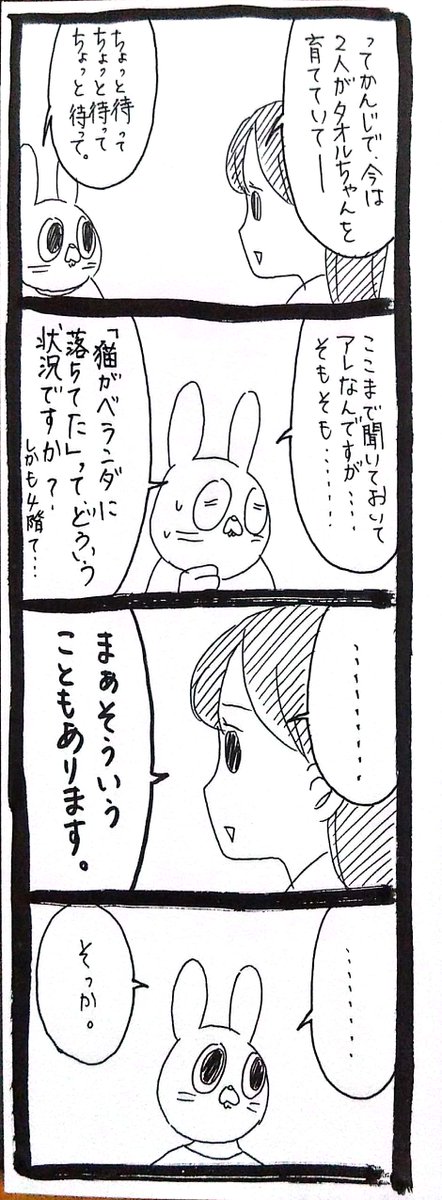 ってかんじで、今は
2人がタオルちゃんを
育てていてー
ちょっと待って
ちょっと待って
ちょっと待って。
ここまで聞いておいて
アレなんですが....
そもそも......
「猫がベランダに
落ちてた」って、どういう
状況ですか?
しかも4階て…
.........
まぁそういう
こともあります。
........
そっか。